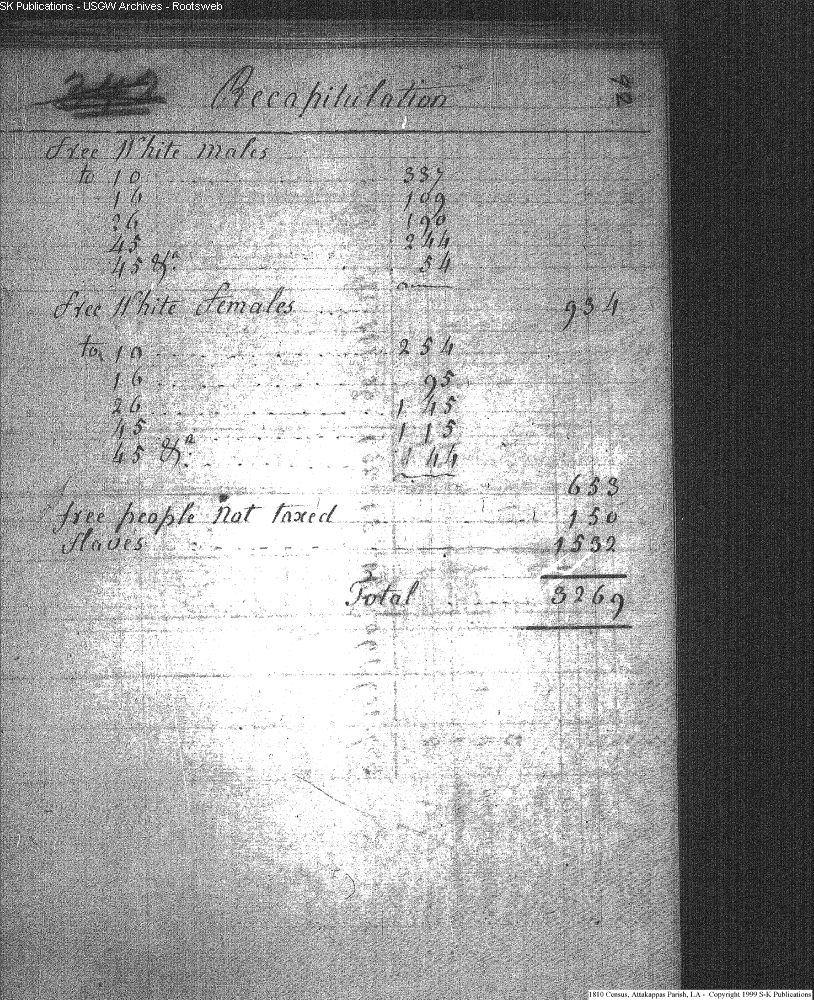 SK Publications - USGW Archives - Rootsweb
Recapitulation
92
free White males
to 10 337
16 109
26 190
45 244
45 &a. 54
934
free White females
to 10 254
16 95
26 145
45 115
45 &a. 144
653
free people not taxed 150
slaves 1532
Total 3269
1810 Census, Attakappas Parish, LA - Copyright 1999 S-K Publications